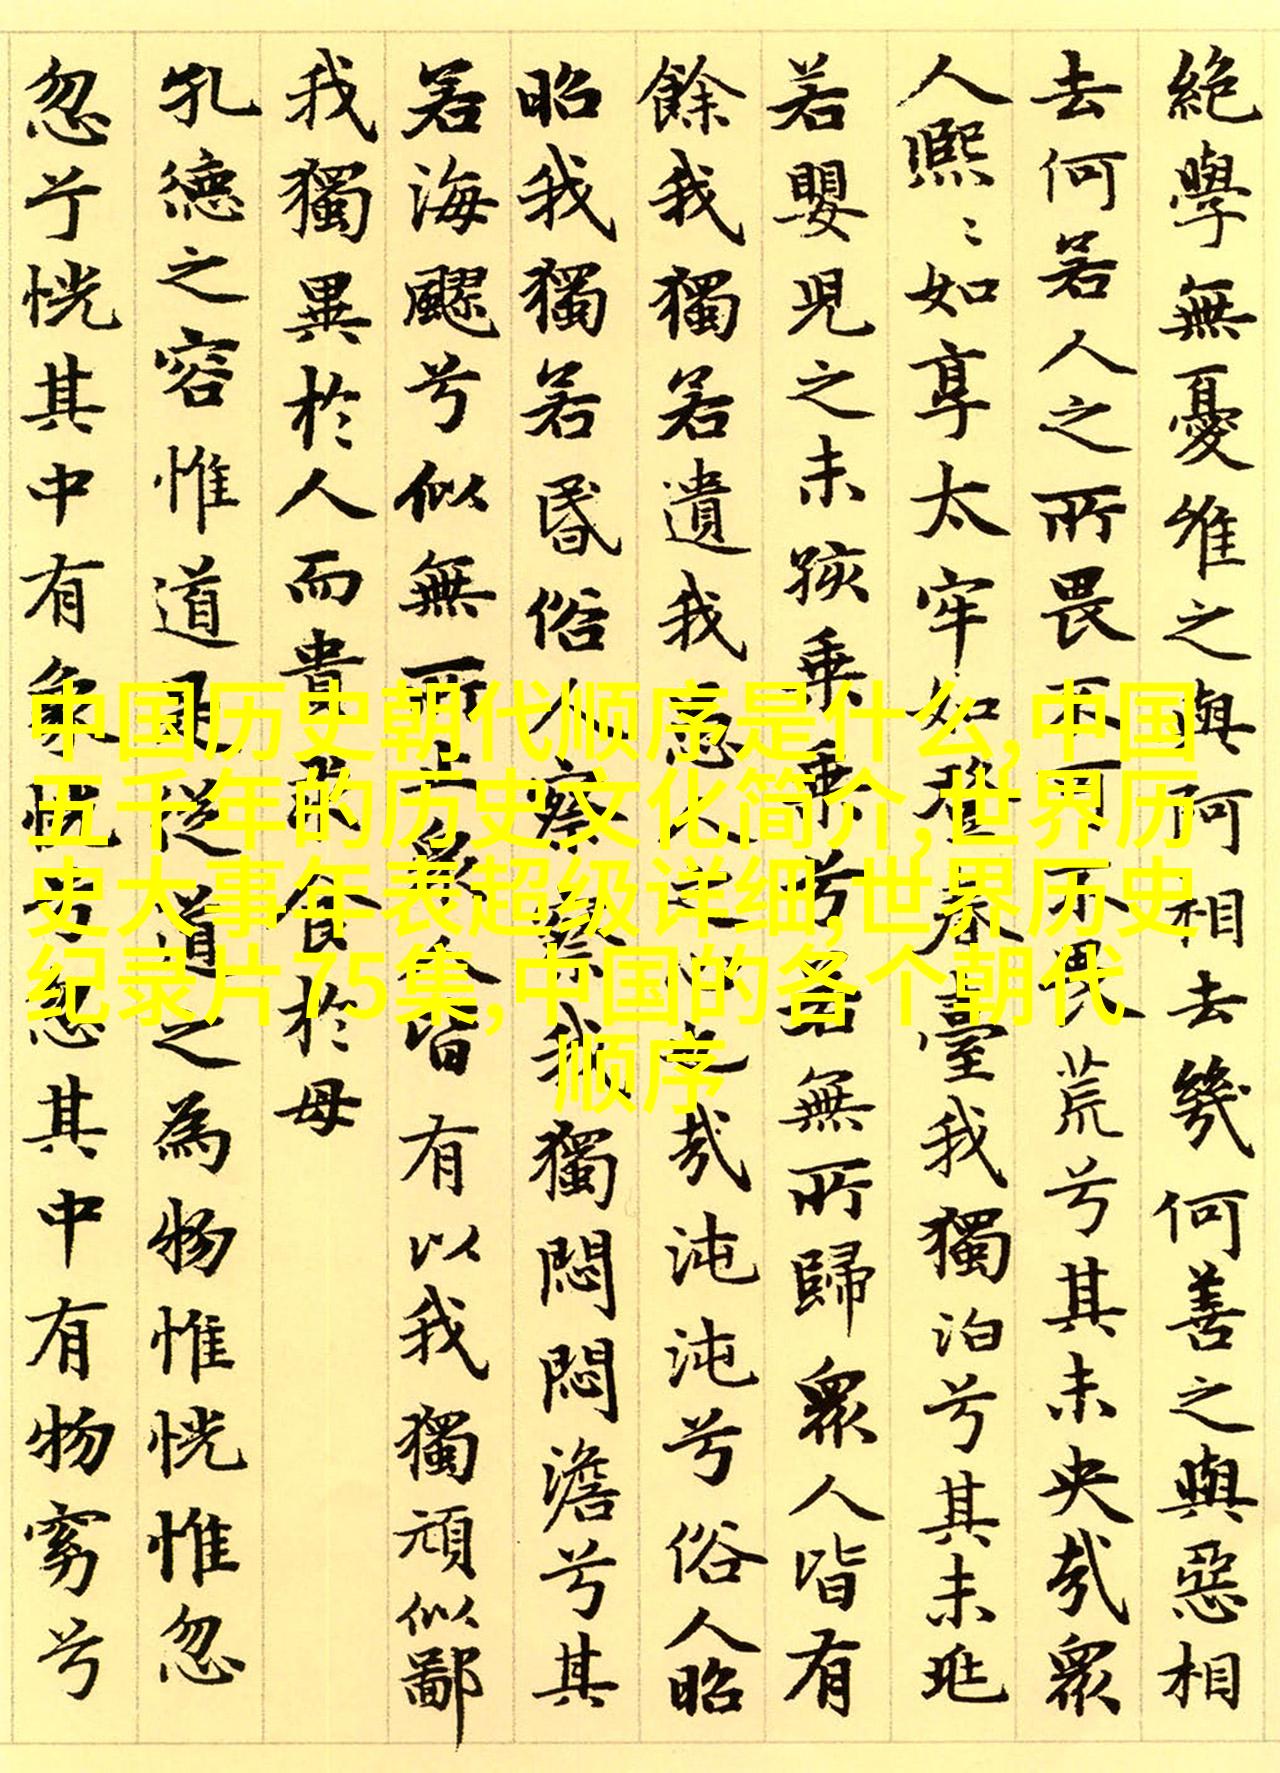 絶學無憂唯之與阿相去幾何善之與惡相
去何若人之所畏不可不畏荒兮其未央哉眾
人熙〻如享太牢如登春臺我獨泊兮其未兆
若嬰兒之未孩乘乘兮若無所歸眾人皆有
餘我獨若遺我愚人之心也哉沌沌兮俗人昭
昭我獨若昏俗人察察我獨悶悶澹兮其
若海飂兮似無所止眾人皆有以我獨頑似鄙
我獨異於人而貴求食於母
孔德之容惟道是從道之為物惟恍惟忽
忽兮恍其中有象恍兮忽其中有物窈兮
中国历史朝代顺序是什么,中国
五千年的历史文化简介,世界历
史大事年表超级详细,世界历史
纪录片75集,中国的各个朝代
顺序